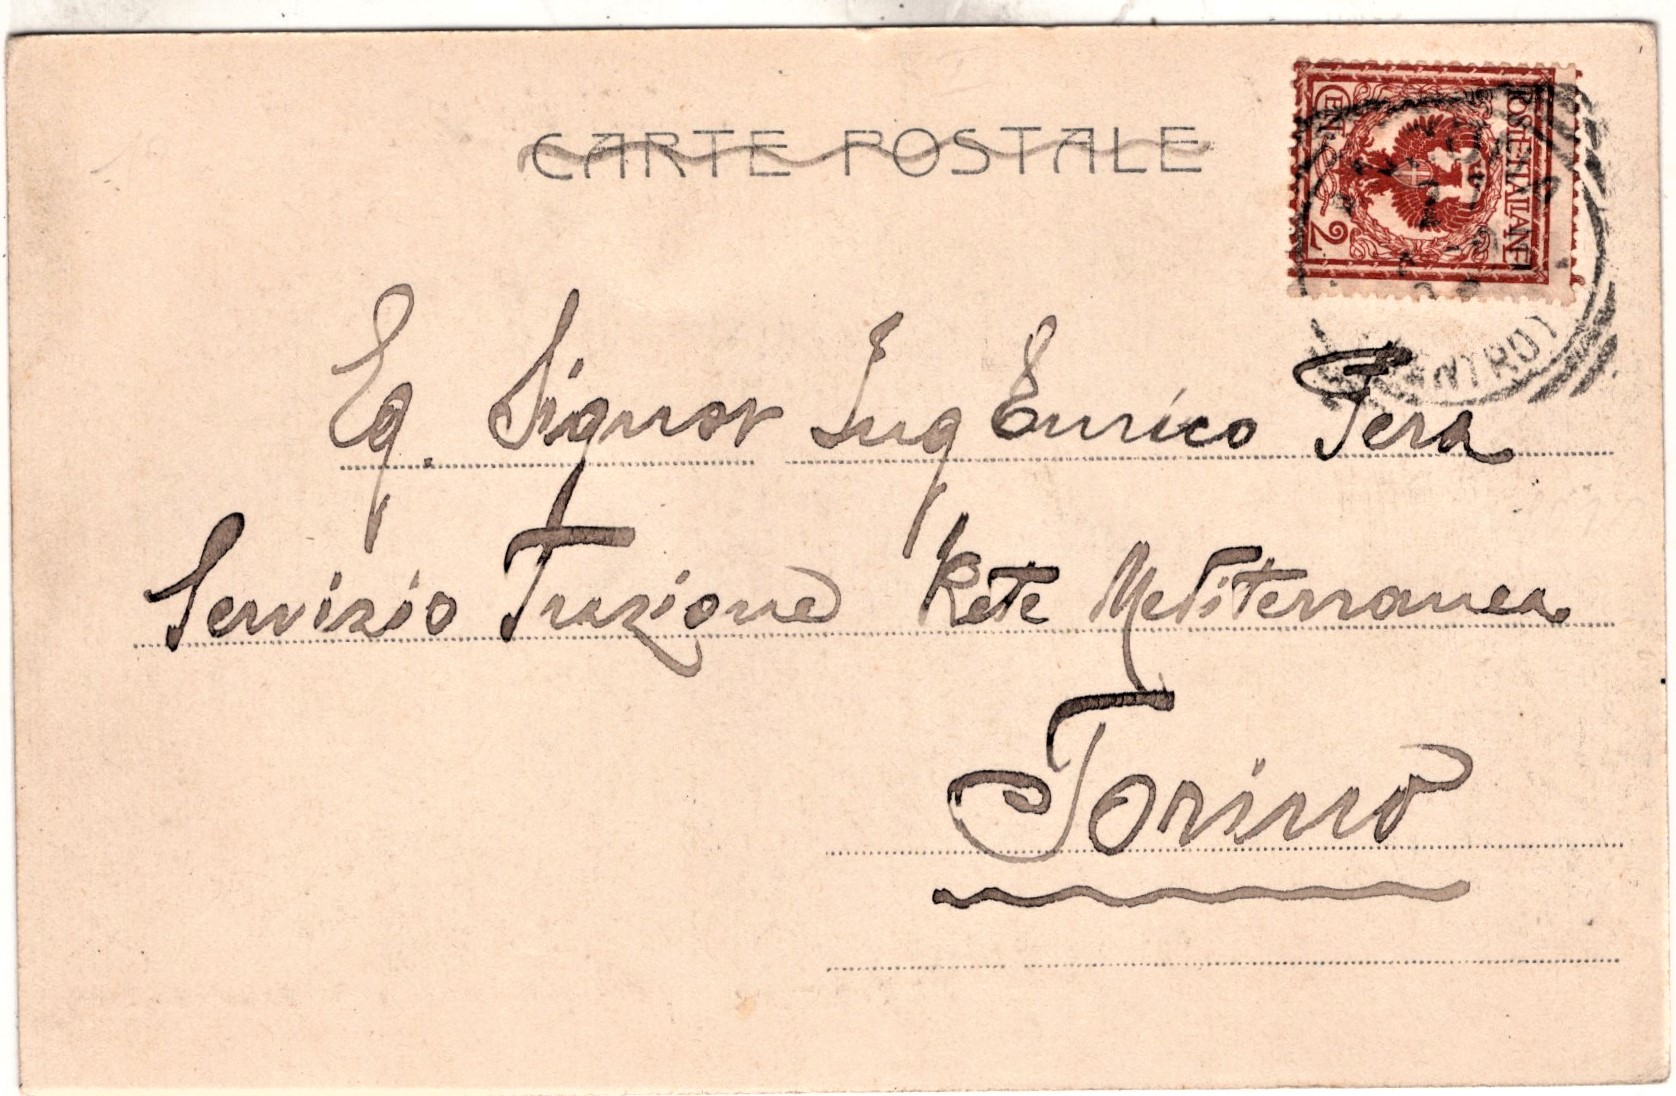 CARTE POSTALE
POSTE ITALIANE
CENT. 2
Eg. Signor Ing Enrico Fera
Servizio Trazione Rete Mediterranea
Torino